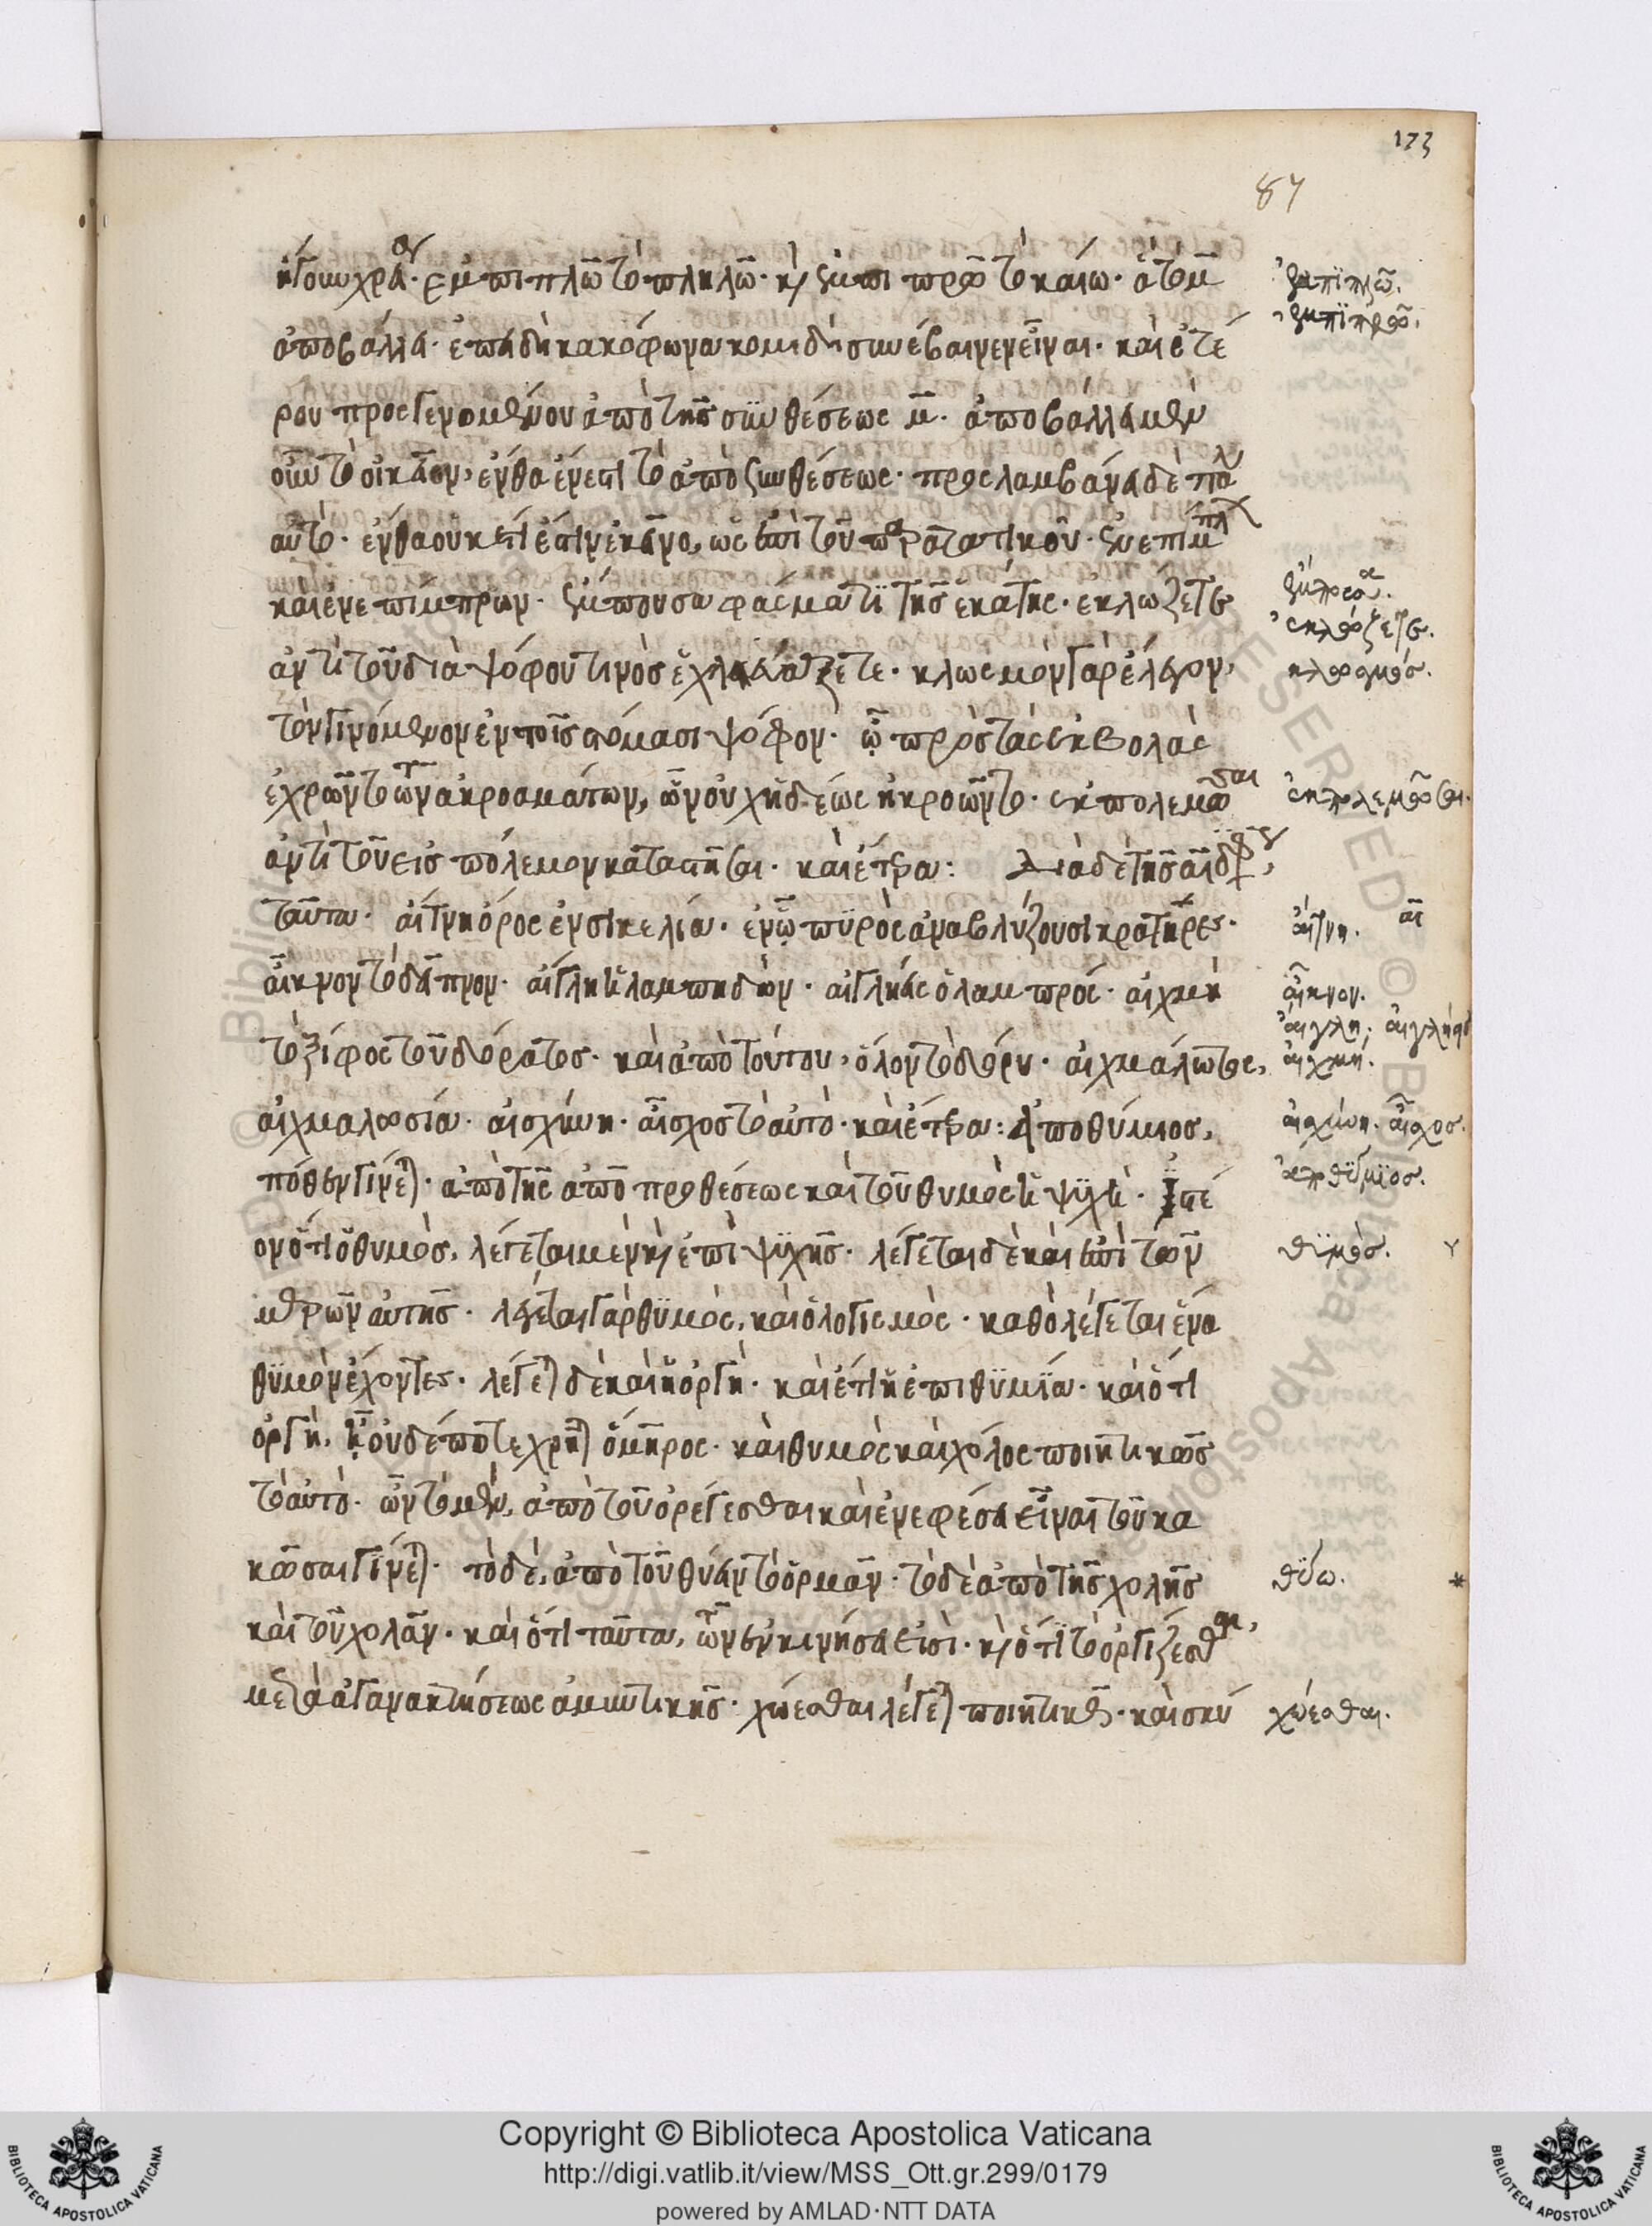 173
87
ἤγουν χρᾶν. ἐμπιπλῶ τὸ πληλῶ. κ(αὶ) ἐμπιπρῶ τὸ καίω. ἃ τὸ μ̄
ἀποβάλλει. ἐπειδὴ κακόφωνα κομιδῆ συνέβαινεν εἶναι. καὶ ἑτέ
ρου προσγενομένου ἀπὸ τῆς συνθέσεως μ̄. ἀποβάλλει μὲν
οὖν τὸ οἰκεῖον, ἔνθα ἔνεστι τὸ ἀπὸ συνθέσεως. προσλαμβάνει δὲ πάλ
αὐτὸ. ἔνθα οὐκέτι ἐστὶν ἐκεῖνο, ὡς ἐπὶ τοῦ παρατατικοῦ. ἐνεπίμπλ
καὶ ἐνεπίμπρων. ἔμπουσα φάσμα τι τῆς ἑκάτης. ἐκλώζετο
ἀντὶ τοῦ διὰ ψόφου τινὸς ἐχλευάζετο. κλωσμὸν γὰρ ἔλεγον,
τὸν γινόμενον ἐν τοῖς στόμασι ψόφον. ᾧ πρὸς τὰς ἐκβολὰς
ἐχρῶντο τῶν ἀκροαμάτων, ὧν οὐχ ἡδέως ἠκροῶντο. ἐκπολεμῶσαι
ἀντὶ τοῦ εἰς πόλεμον καταστῆσαι. καὶ ἕτερα: Διὰ δὲ τῆς αι διφθ
ταῦτα. αἴτνη ὄρος ἐν σικελία. ἐν ᾧ πυρὸς ἀναβλύζουσι κρατῆρες.
αἶκνον τὸ δεῖπνον. αἴγλη ἡ λαμπηδών. αἰγλήεις ὁ λαμπρός. αἰχμὴ
τὸ ξίφος τοῦ δόρατος. καὶ ἀπὸ τούτου, ὅλον τὸ δόρυ. αἰχμάλωτος,
αἰχμαλωσία. αἰσχύνη. αἶσχος τὸ αὐτὸ. καὶ ἕτερα: Ἀποθύμιος,
πόθεν γίνεται. ἀπὸ τῆς ἀπὸ προθέσεως καὶ τοῦ θυμὸς ἡ ψυχὴ. Ἰστέ
ον ὅτι ὁ θυμὸς, λέγεται μὲν κ(αὶ) ἐπὶ ψυχῆς. λέγεται δὲ καὶ ἐπὶ τῶν
μερῶν αὐτῆς. λέγεται γὰρ θυμὸς, καὶ ὁ λογισμὸς. καθὸ λέγεται ἕνα
θυμὸν ἔχοντες. λέγεται δὲ καὶ ἡ ὀργὴ. καὶ ἔτι ἡ ἐπιθυμία. καὶ ὅτι
ὀργὴ, ᾗ οὐδέποτε χρῆται ὅμηρος. καὶ θυμὸς καὶ χόλος ποιητικῶς
τὸ αὐτὸ. ὧν τὸ μὲν, ἀπὸ τοῦ ὀρέγεσθαι καὶ ἐν ἐφέσει εἶναι τοῦ κα
κῶσαι γίνεται. τὸ δὲ, ἀπὸ τοῦ θύειν τὸ ὁρμᾶν. τὸ δὲ ἀπὸ τῆς χολῆς
καὶ τοῦ χολᾶν. καὶ ὅτι ταῦτα, τῶν ἐν κινήσει εἰσὶ. κ(αὶ) ὅτι τὸ ὀργίζεσθαι,
μετὰ ἀγανακτήσεως ἀμυντικῆς. χώεσθαι λέγεται ποιητικῶς. καὶ σκύ
ἐμπιπλῶ.
ἐμπιπρῶ.
ἔμπουσα.
ἐκλώζετο.
κλωσμός.
ἐκπολεμῶσαι.
αἴτνη. αι
αἶκνον.
αἴγλη. αἰγλήεις
αἰχμή.
αἰσχύνη. αἶσχος.
ἀποθύμιος.
θυμὸς.
θύω.
χώεσθαι.
Copyright © Biblioteca Apostolica Vaticana
http://digi.vatlib.it/view/MSS_Ott.gr.299/0179
powered by AMLAD·NTT DATA
BIBLIOTECA APOSTOLICA VATICANA
BIBLIOTECA APOSTOLICA VATICANA